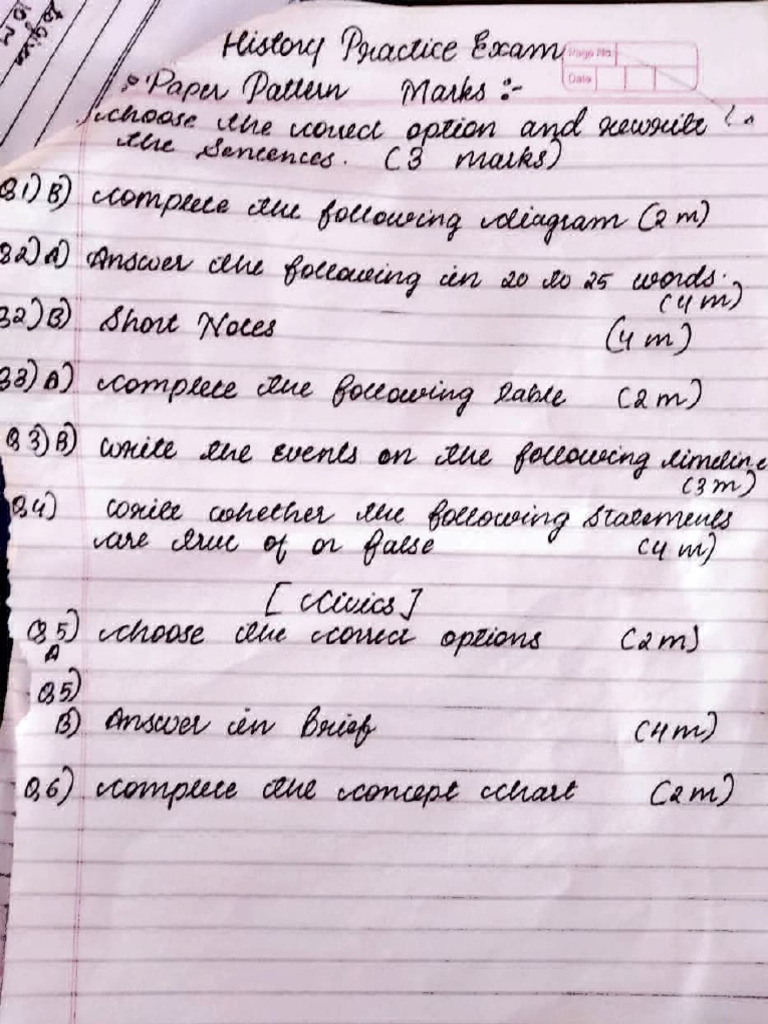 to given
History Practice Exam
Page No
Date
Paper Pattern Marks :-
choose the correct option and rewrite
the sentences. (3 marks)
Q1) B) complete the following diagram (2m)
Q2) A) Answer the following in 20 to 25 words.
(4m)
Q2) B) Short Notes (4m)
Q3) A) complete the following table (2m)
Q3) B) write the events on the following timeline
(3m)
Q4) write whether the following statements
are true of or false (4m)
[Civics]
Q5) choose the correct options (2m)
A
Q5)
B) Answer in Brief (4m)
Q6) complete the concept chart (2m)